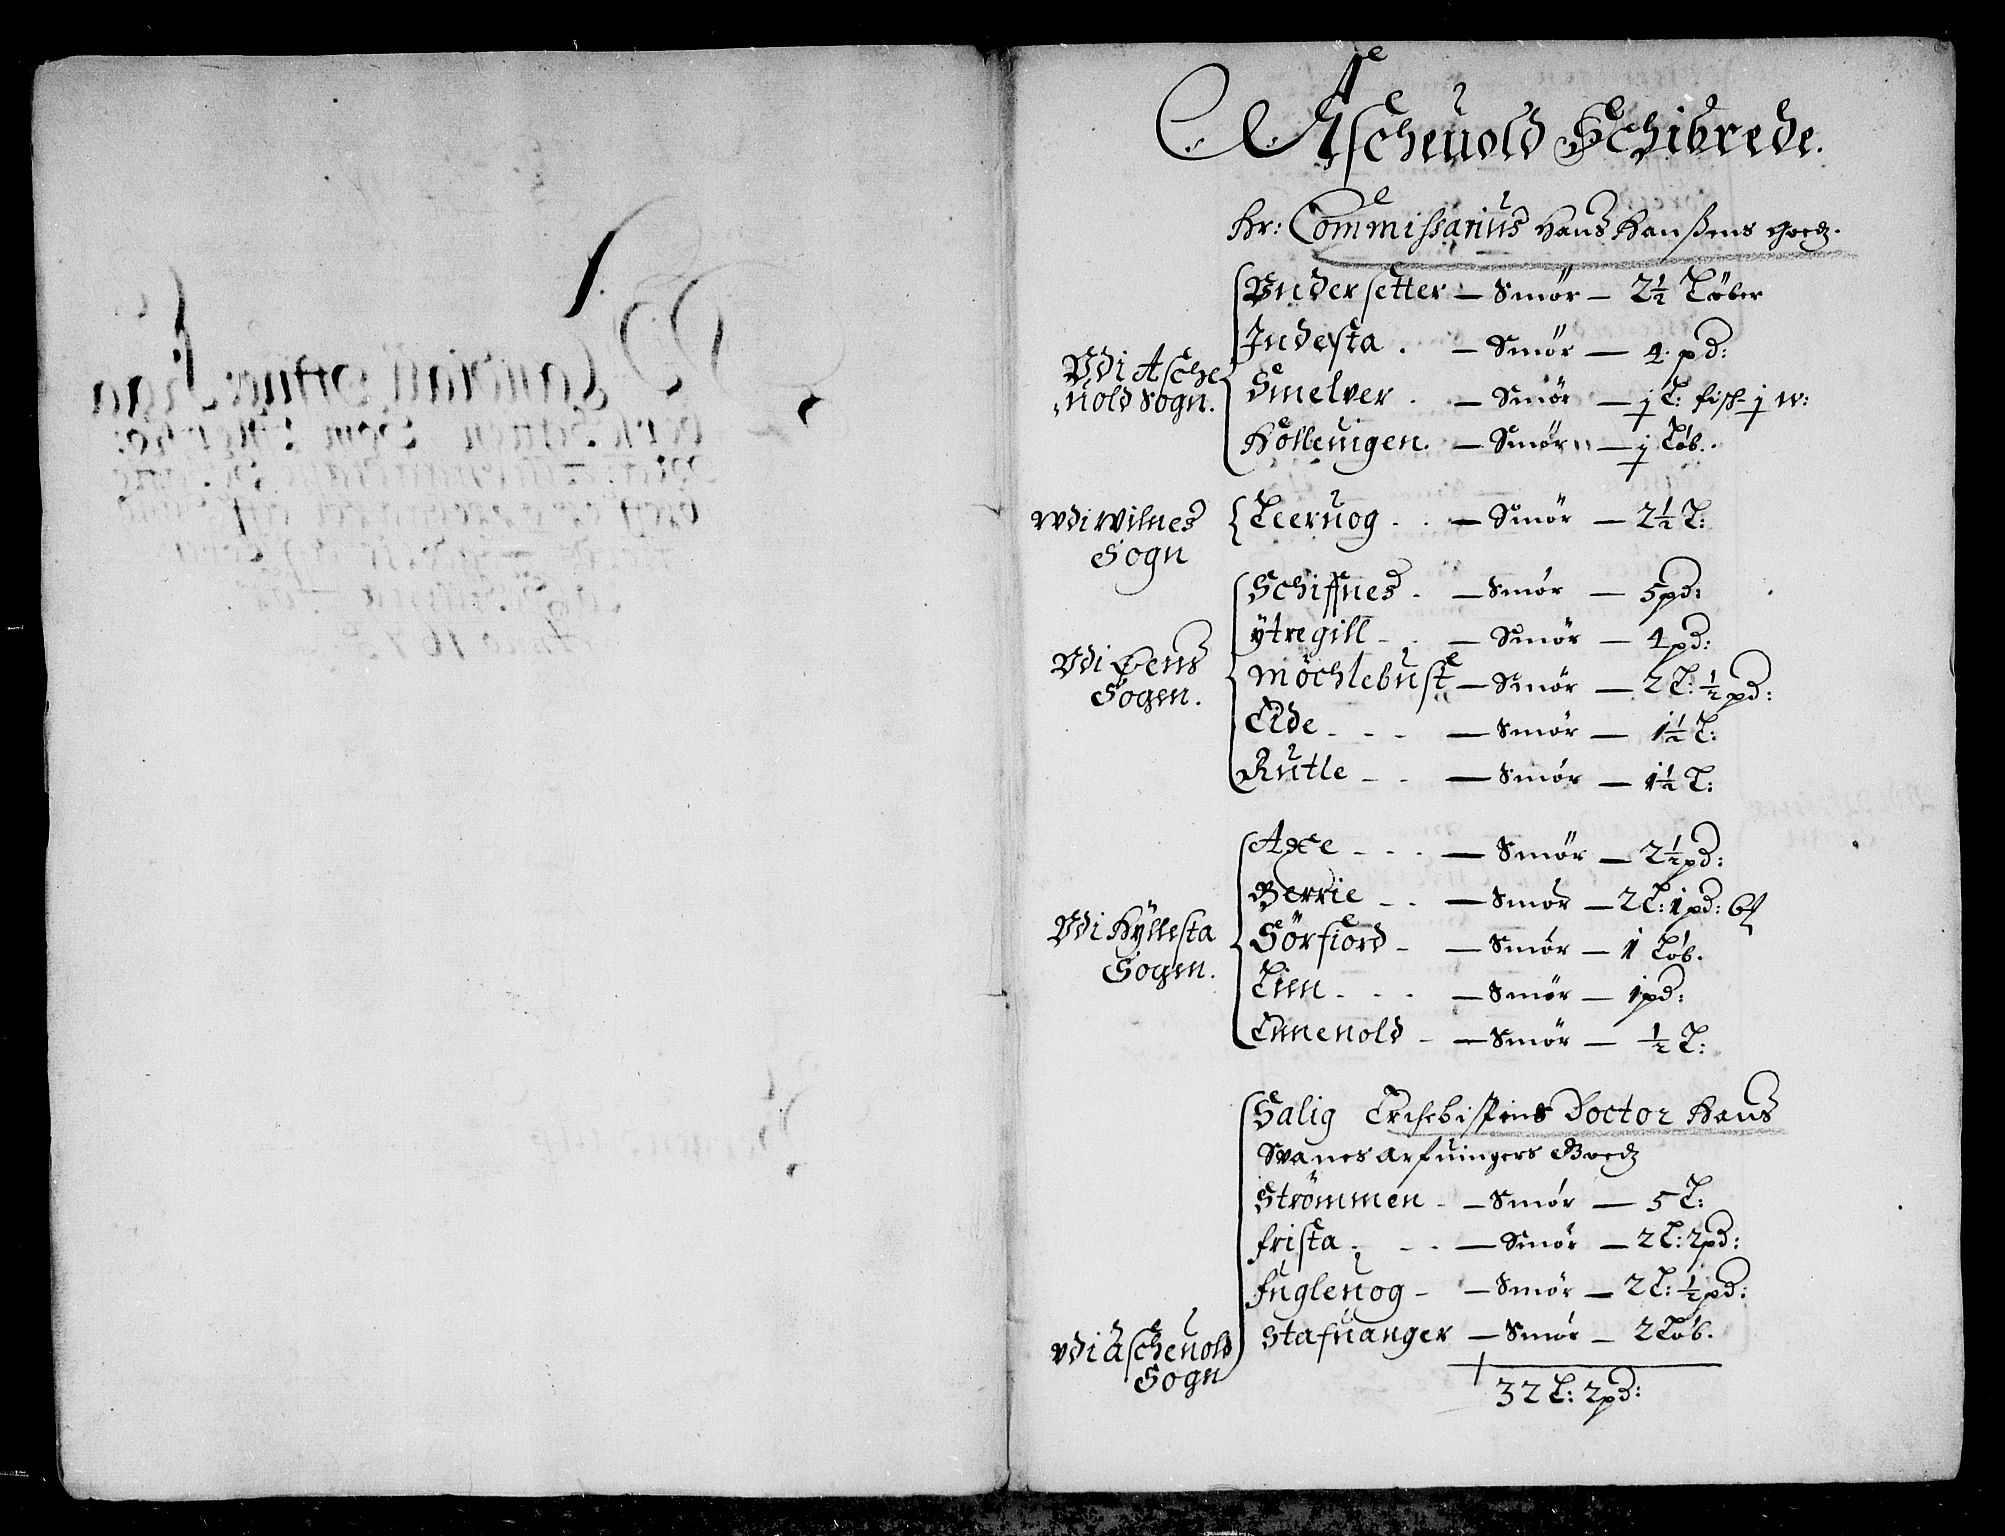 Ascheuold Schibrede.
Hr: Commissarius Hans Hanssens goedz.
Vdi Asche
uold Sogn.
Vndersetter — Smör — 2½ Löber
Indesta . — Smör — 4 pd:
Smelver . — Smör — j L: fisch j w:
Kolleuigen. — Smör — j Löb.
vdi Wilnes
Sogn
Leeruog . . — Smör — 2½ L:
Vdi Øens
Sogen.
Schiffnes . — Smör — 5 pd:
ytregill - . — Smör — 4 pd:
Möchlebust — Smör — 2 L: ½ pd:
Eide - - - — Smör — 1½ L:
Rutle - - — Smör — 1½ L:
Vdi Hyllesta
Sogen.
Axe - - - — Smör — 2½ pd:
Berrie - - — Smör — 2 L: 1 pd:
Sörfiord - — Smör — 1 Löb.
Lien - - - — Smör — 1 pd:
Emmeuold - — Smör — ½ L:
Salig Erchebispens Doctor Hans
Svanes arfuingers Goedz
vdi Ascheuold
Sogn
Strömmen - — Smör — 5 L:
frista - - — Smör — 2 L: 2 pd:
fugleuog - — Smör — 2 L: ½ pd:
Stafuanger — Smör — 2 Löb.
32 L: 2 pd: